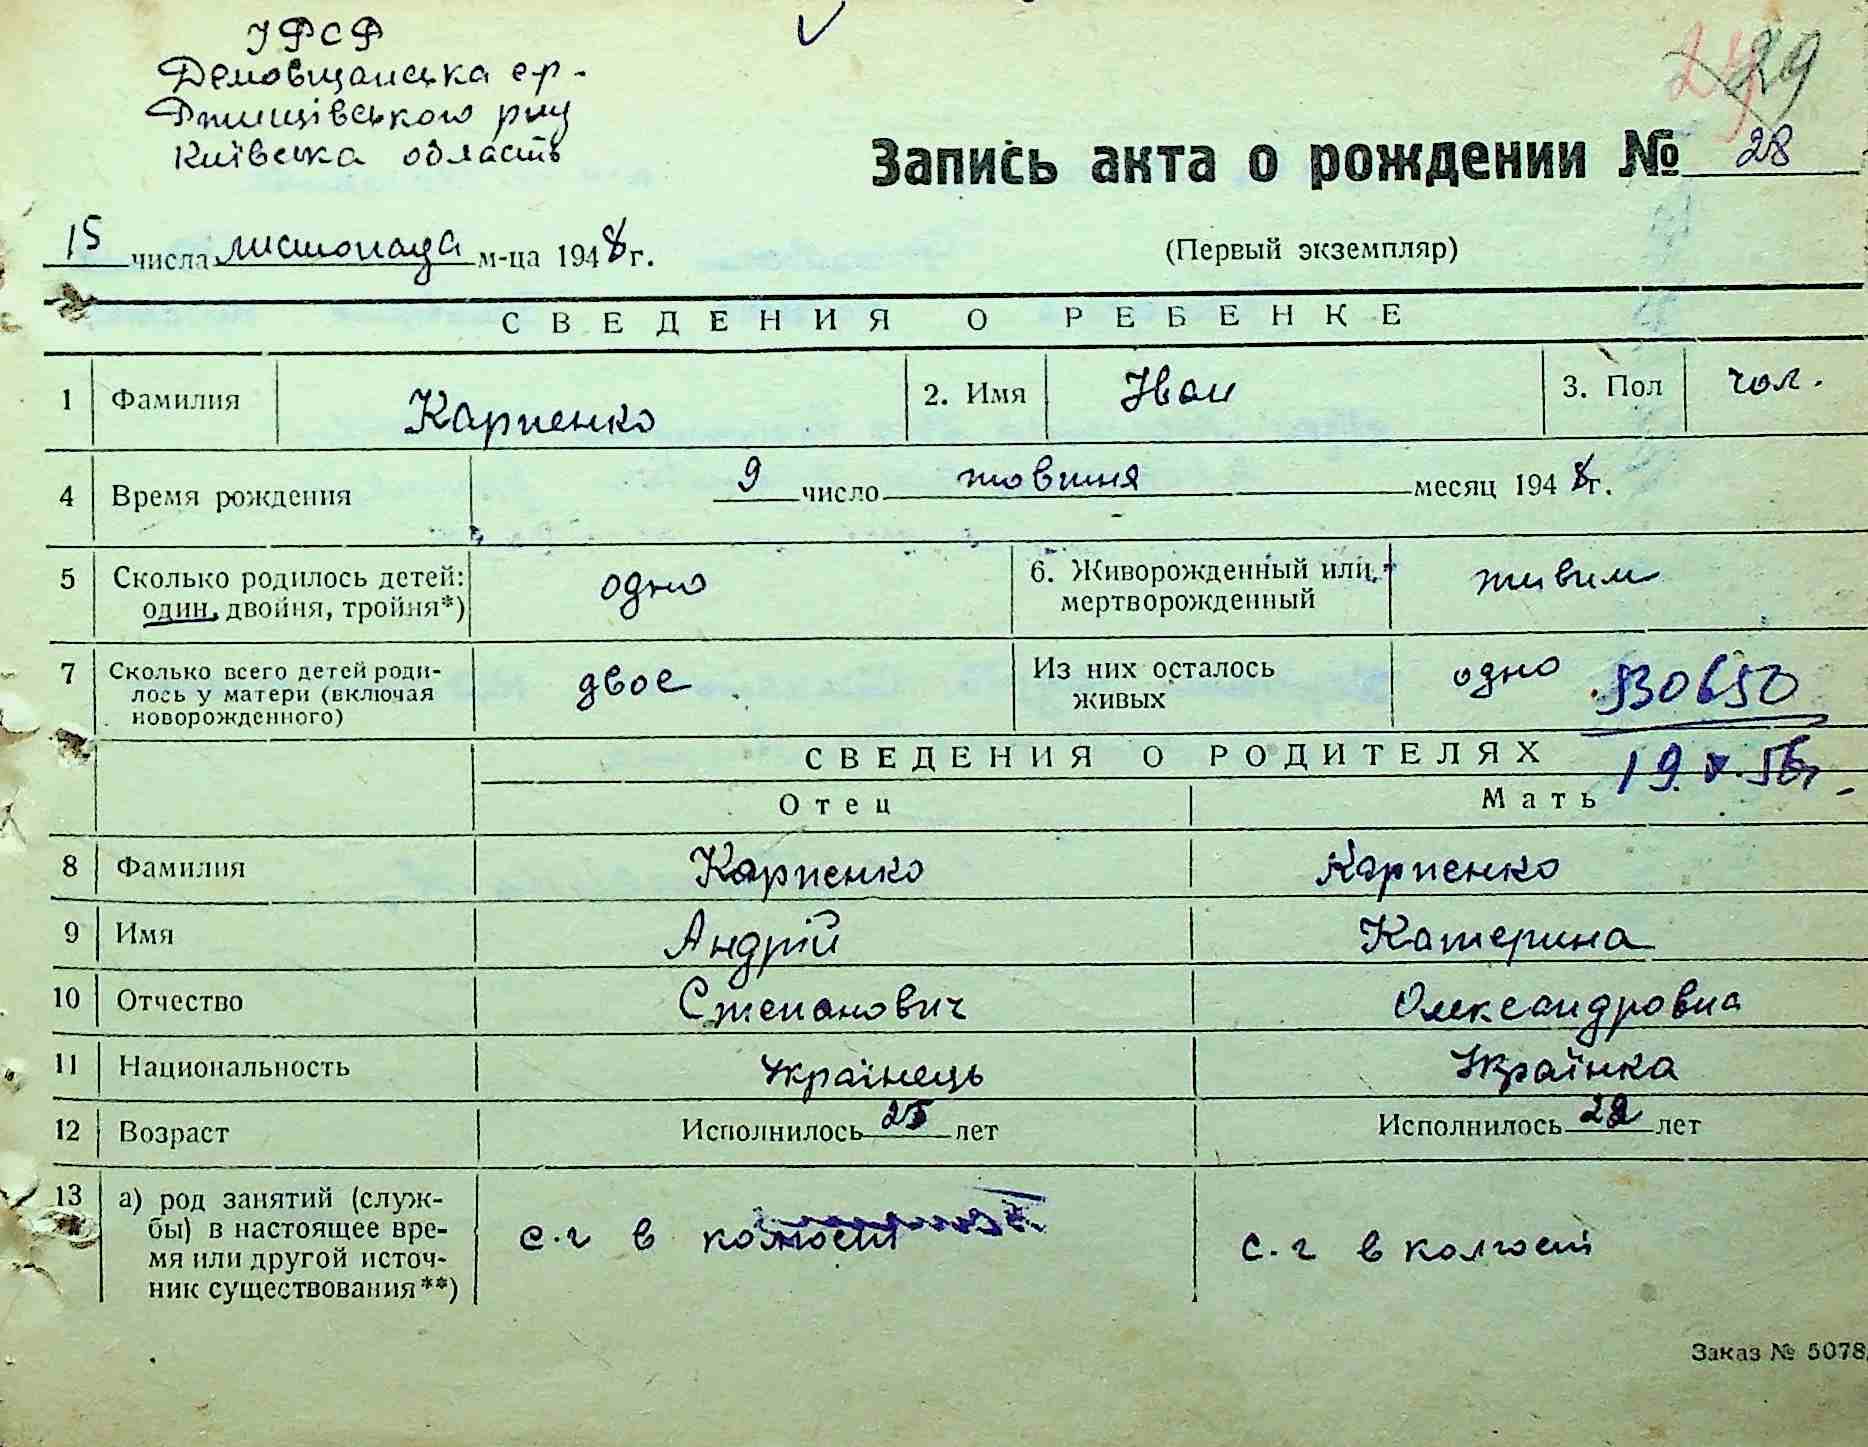 УРСР
Демовщанська с-р.
Ржищівського р-ну
Київська область
29
Запись акта о рождении № 28
15 числа листопада м-ца 1948 г.
(Первый экземпляр)
СВЕДЕНИЯ О РЕБЕНКЕ
1 Фамилия Карпенко 2. Имя Іван 3. Пол чол.
4 Время рождения 9 число жовтня месяц 1948 г.
5 Сколько родилось детей: одно 6. Живорожденный или живим
один, двойня, тройня*) мертворожденный
7 Сколько всего детей роди- двое Из них осталось одно
лось у матери (включая живых
новорожденного)
930650
СВЕДЕНИЯ О РОДИТЕЛЯХ
19.V.56г.
Отец Мать
8 Фамилия Карпенко Карпенко
9 Имя Андрій Катерина
10 Отчество Степанович Олександровна
11 Национальность Українець Українка
12 Возраст Исполнилось 25 лет Исполнилось 22 лет
13 а) род занятий (служ-
бы) в настоящее вре- с.г в колгосп с.г в колгосп
мя или другой источ-
ник существования**)
Заказ № 5078.